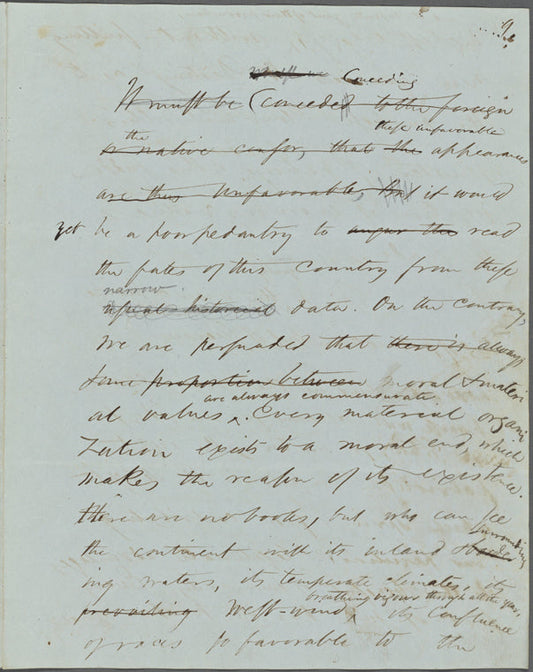 9.
Conceeding
It must be Conceeded to the foreign
the these unfavorable
or native censor, that the appearances
are thus unfavorable, it would
yet be a poor pedantry to augur the read
the fates of this country from these
narrow
historical data. On the contrary,
We are persuaded that there is always
some proportion between moral & materi
are always commensurate
al values ^. Every material organi
zation exists to a moral end which
makes the reason of its existence.
There are no books, but who can see
surrounding
the continent with its inland &
ing waters, its temperate climates, its
breathing vigour through all the year,
prevailing West-wind ^ its confluence
of races so favorable to the